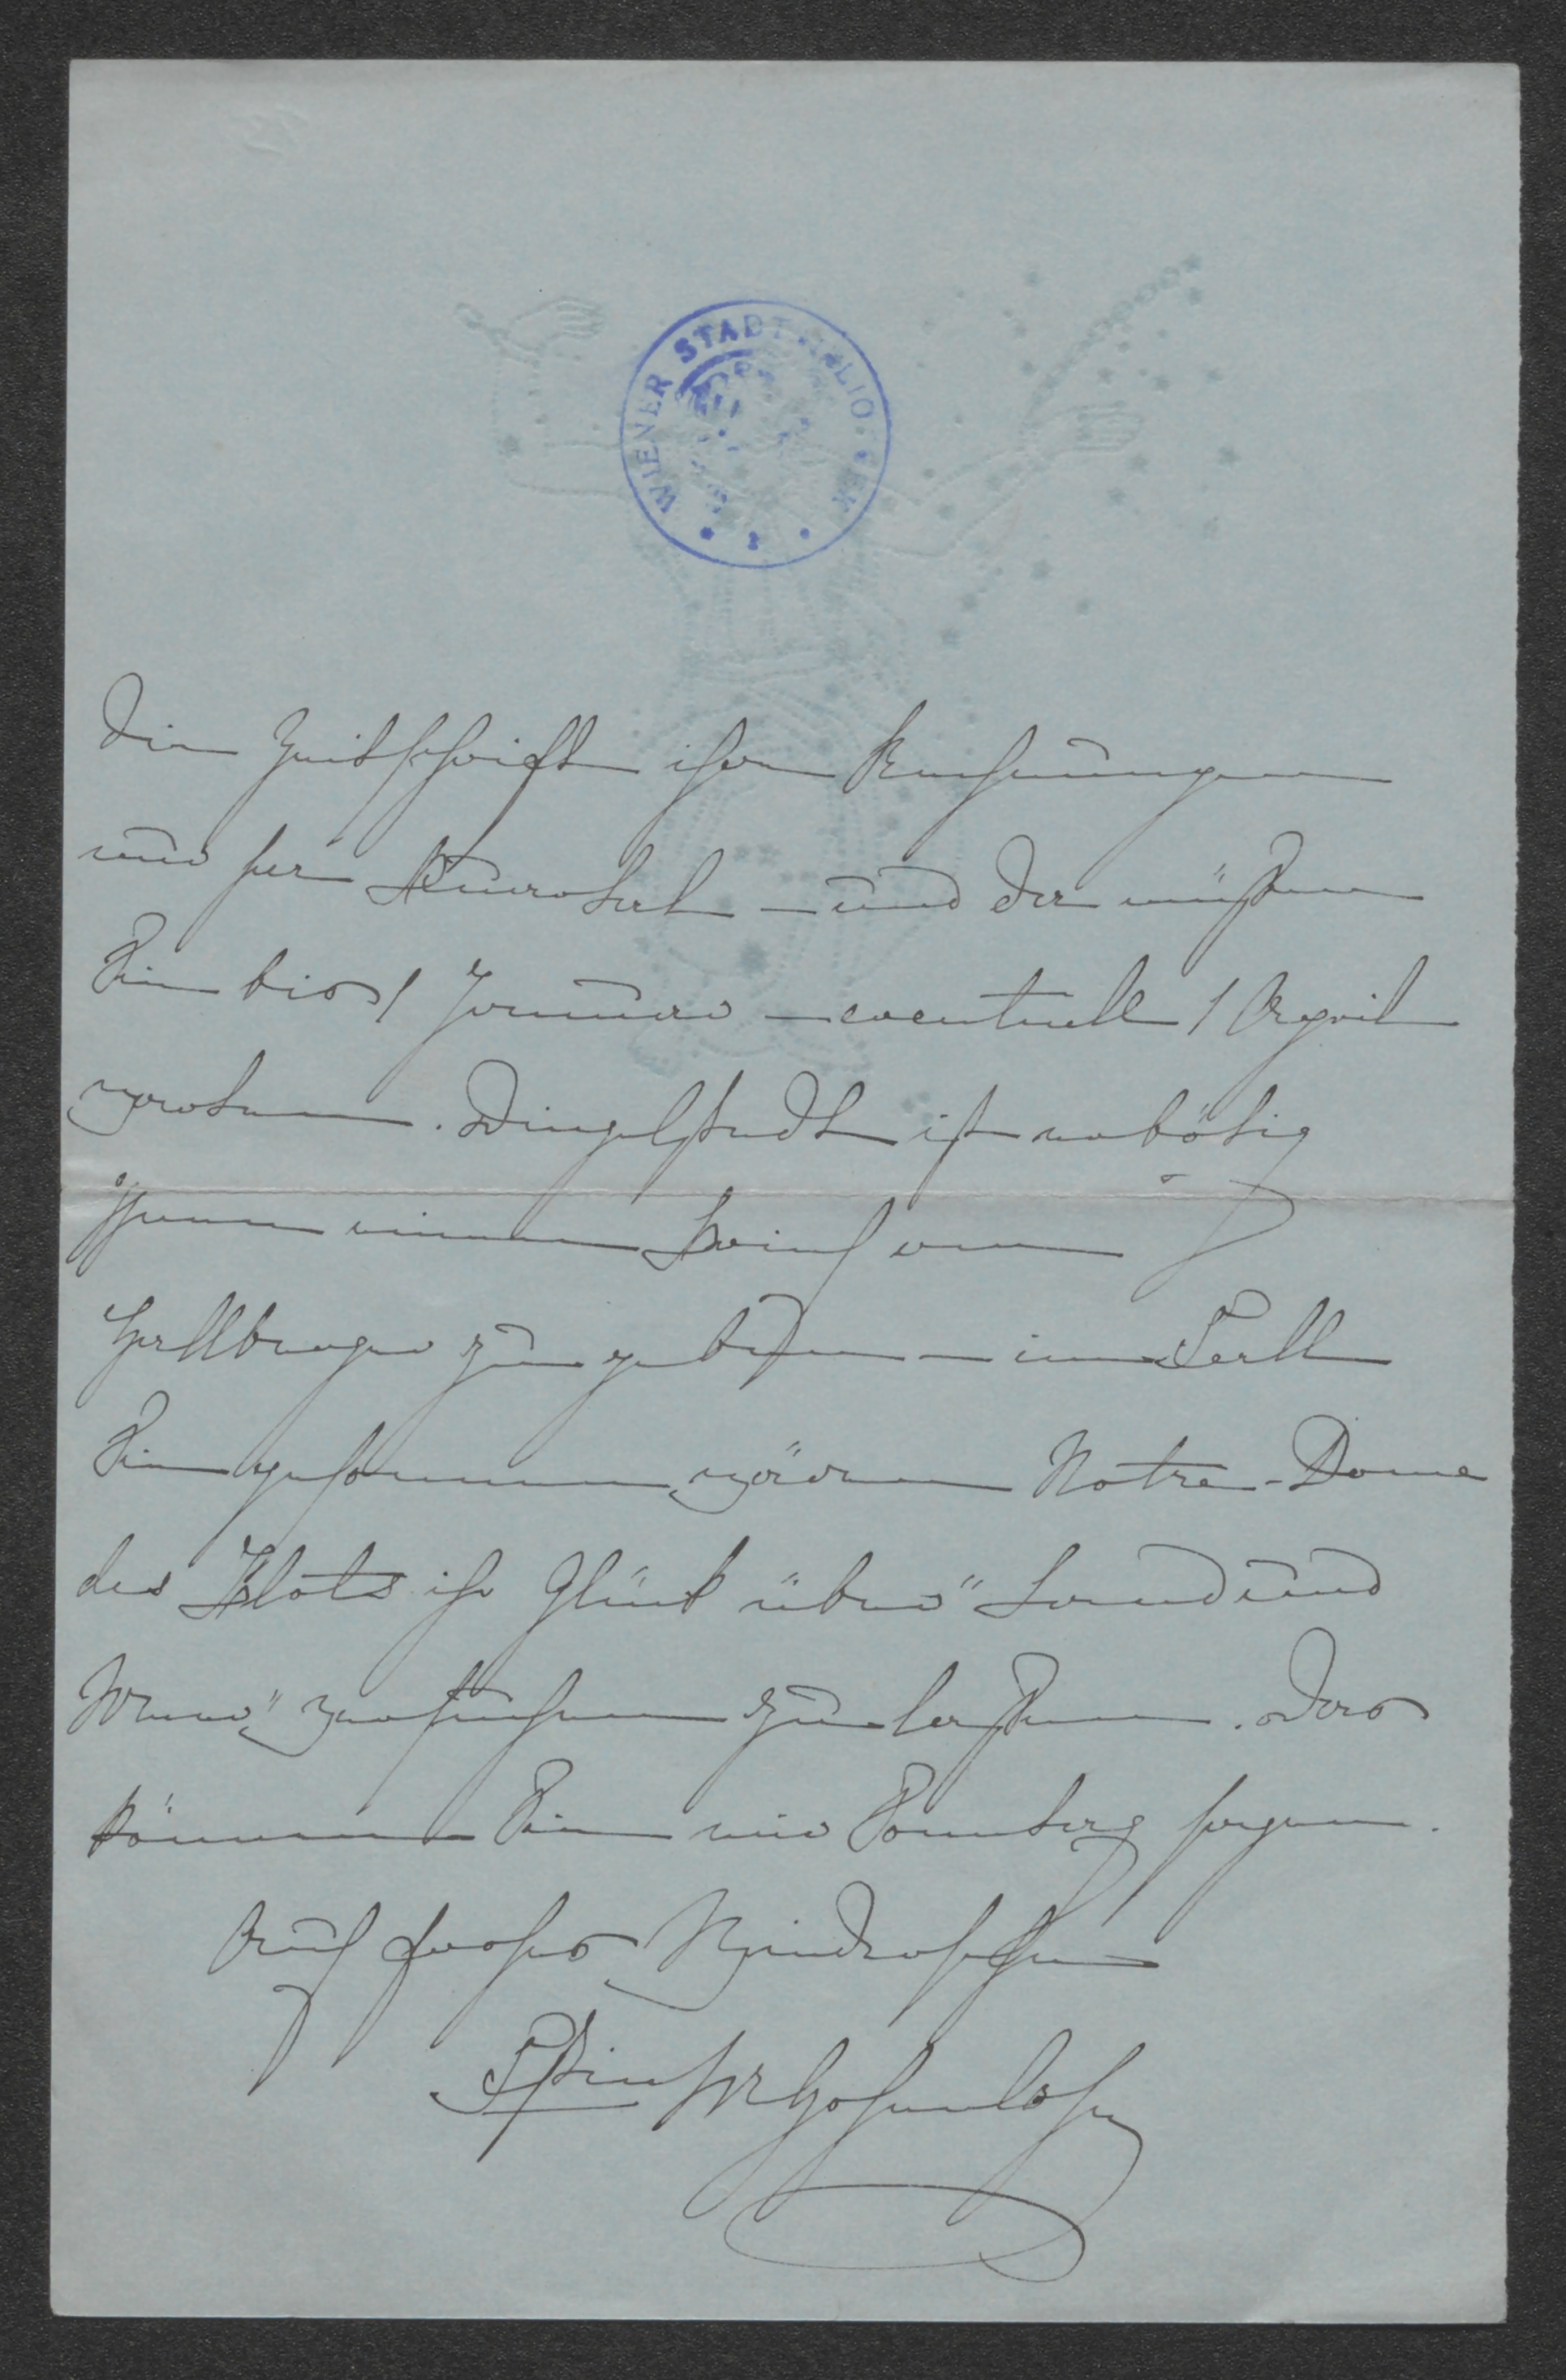 WIENER STADTBIBLIOTHEK
Die Zeitschrift ihre Rechnungen
und ihr Quartal – und da müßen
Sie bis 1 Januar – eventuell 1 April
warten. Dingelstedt ist erbötig
Ihnen einen Brief an
Hallberger zu geben – im Falle
Sie gesonnen wären Notre-Dame
des Flots ihr Glück über "Land und
Meer" versuchen zu laßen. Das
können Sie mir Sonntag sagen.
Auf frohes Wiedersehen
Fstin M Hohenlohe